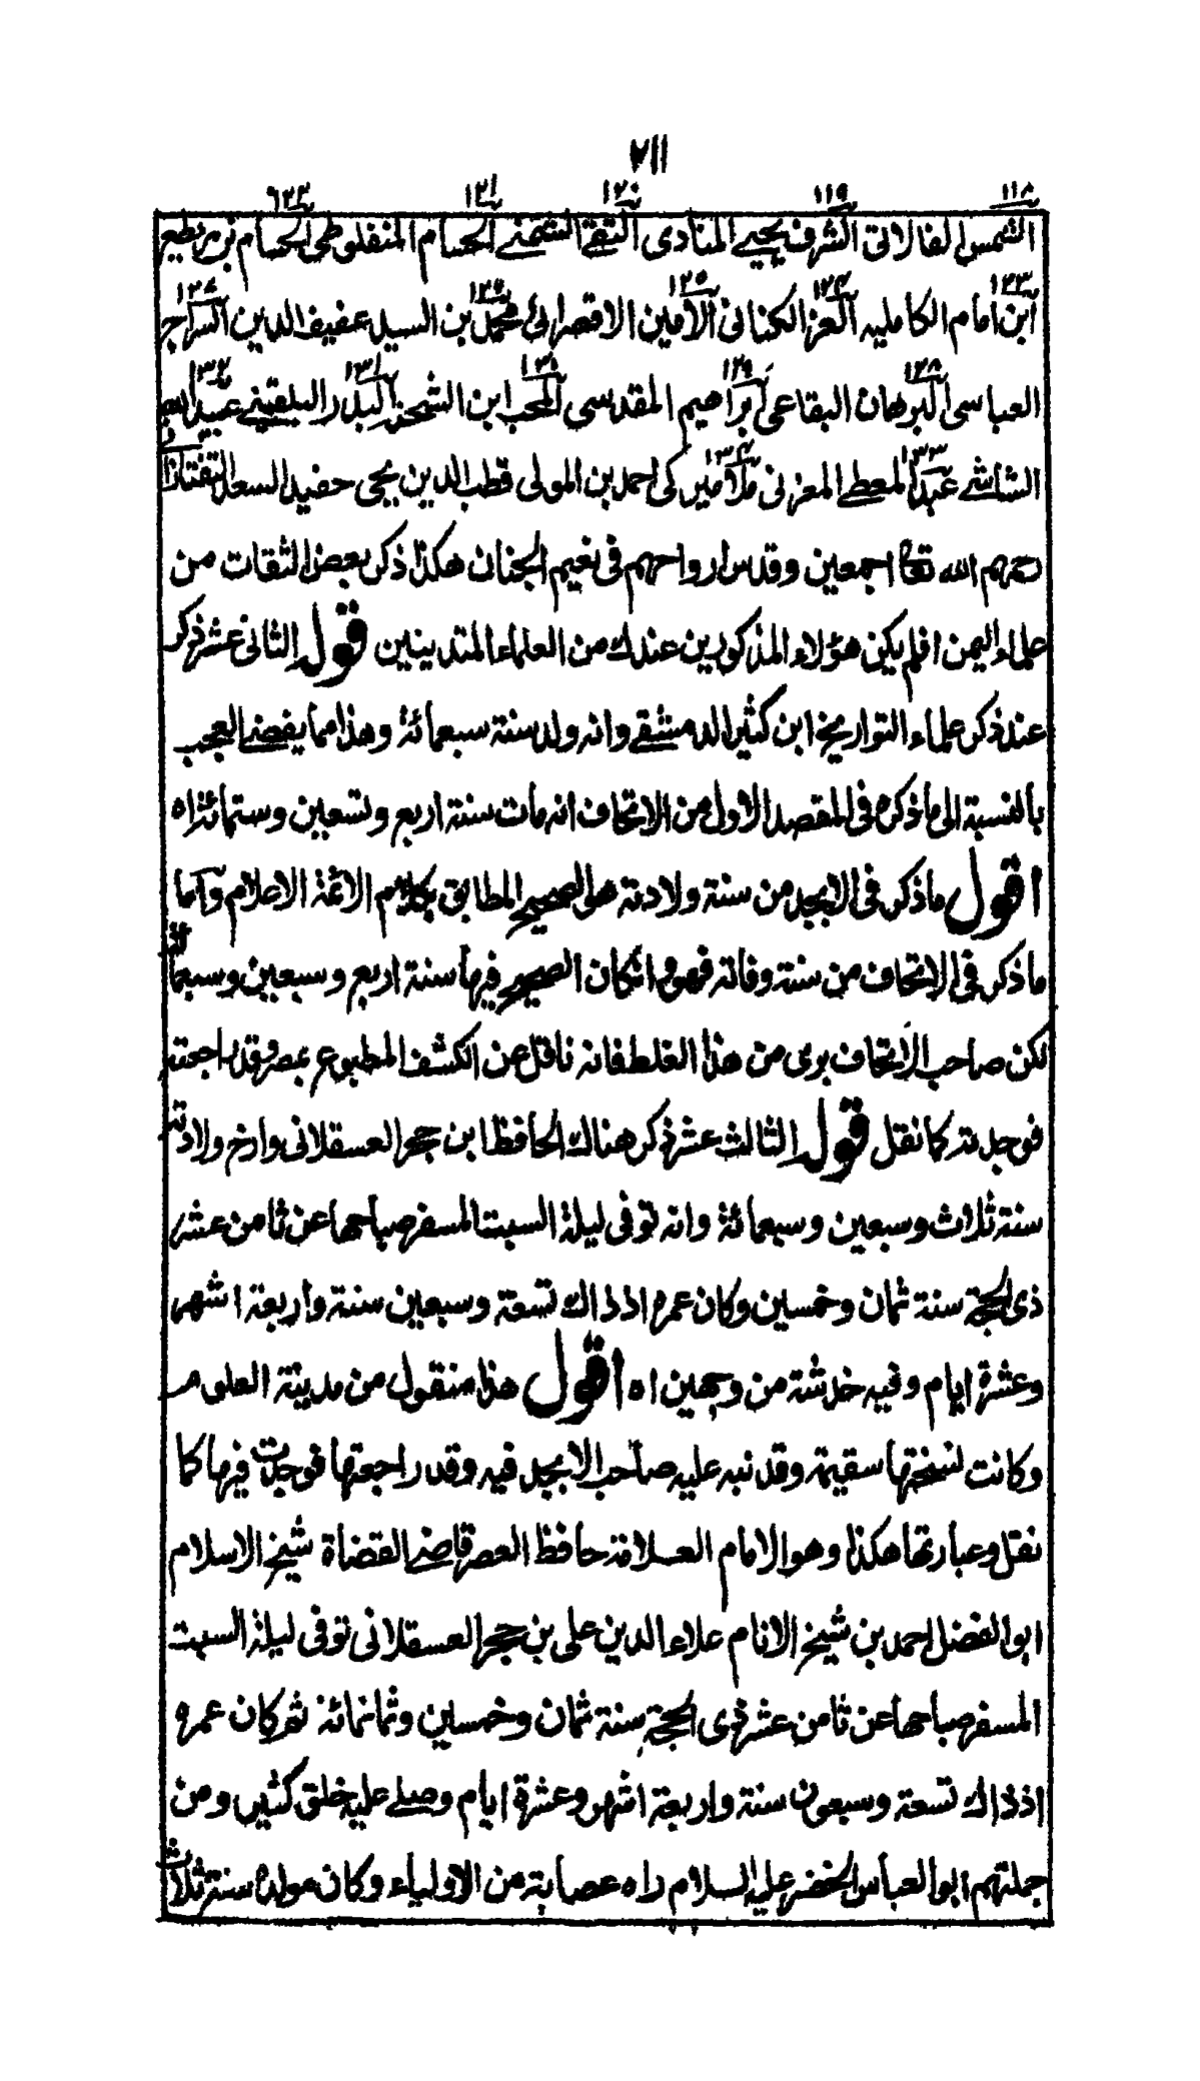 ٧١١
١١٨ ١١٩ ١٢٠ ١٢١
الشمس الفالاتى الشرف يحيى المنادى التقى الشمنى الحسام المنفلوطى الحسام بن
١٢٣ ١٢٤ ١٢٥ ١٢٦
ابن امام الكامليه العز الكنانى الامين الاقصرائى محمد بن السيد عفيف الدين السراج
١٢٨ ١٢٩ ١٣٠ ١٣١ ١٣٢
العباسى البرهان البقاعى ابراهيم المقدسى المحب ابن الشحنه البدر البلقينى عبيد الله
١٣٣ ١٣٤
الشاشى عبد المعطى المغربى ملا مير كى احمد بن المولى قطب الدين يحيى حفيد السعد التفتازانى
رحمهم الله تعالى اجمعين وقدس ارواحهم فى نعيم الجنان هكذا ذكر بعض الثقات من
علماء اليمن افلم يكن هؤلاء المذكورين عندك من العلماء المتدينين قوله الثانى عشر ذكر
عند ذكر علماء التواريخ ابن كثير الدمشقى وانه ولد سنة سبعمائة وهذا مما يفضى العجب
بالنسبة الى ما ذكره فى المقصد الاول من الاتحاف انه مات سنة اربع وتسعين وستمائة اه
اقول ما ذكر فى الابجد من سنة ولادته هو الصحيح المطابق بكلام الائمة الاعلام واما
ما ذكر فى الاتحاف من سنة وفاته فهو وان كان الصحيح فيها سنة اربع وسبعين وسبعمائة
لكن صاحب الاتحاف برى من هذا الغلط فانه ناقل عن الكشف المطبوع بمصر وقد راجعته
فوجدته كما نقل قوله الثالث عشر ذكر هناك الحافظ ابن حجر العسقلانى وارخ ولادته
سنة ثلاث وسبعين وسبعمائة وانه توفى ليلة السبت المسفر صباحها عن ثامن عشر
ذى الحجة سنة ثمان وخمسين وكان عمره اذ ذاك تسعة وسبعين سنة واربعة اشهر
وعشرة ايام وفيه خدشة من وجهين اه اقول هذا منقول من مدينة العلوم
وكانت نسختها سقيمة وقد نبه عليه صاحب الابجد فيه وقد راجعتها فوجدت فيها كما
نقل وعبارتها هكذا وهو الامام العلامة حافظ العصر قاضى القضاة شيخ الاسلام
ابو الفضل احمد بن شيخ الانام علاء الدين على بن حجر العسقلانى توفى ليلة السبت
المسفر صباحها عن ثامن عشر ذى الحجة سنة ثمان وخمسين وثمانمائة ثم كان عمره
اذ ذاك تسعة وسبعون سنة واربعة اشهر وعشرة ايام وصلى عليه خلق كثير ومن
جملتهم ابو العباس الخضر عليه السلام راه عصابة من الاولياء وكان مولده سنة ثلاث